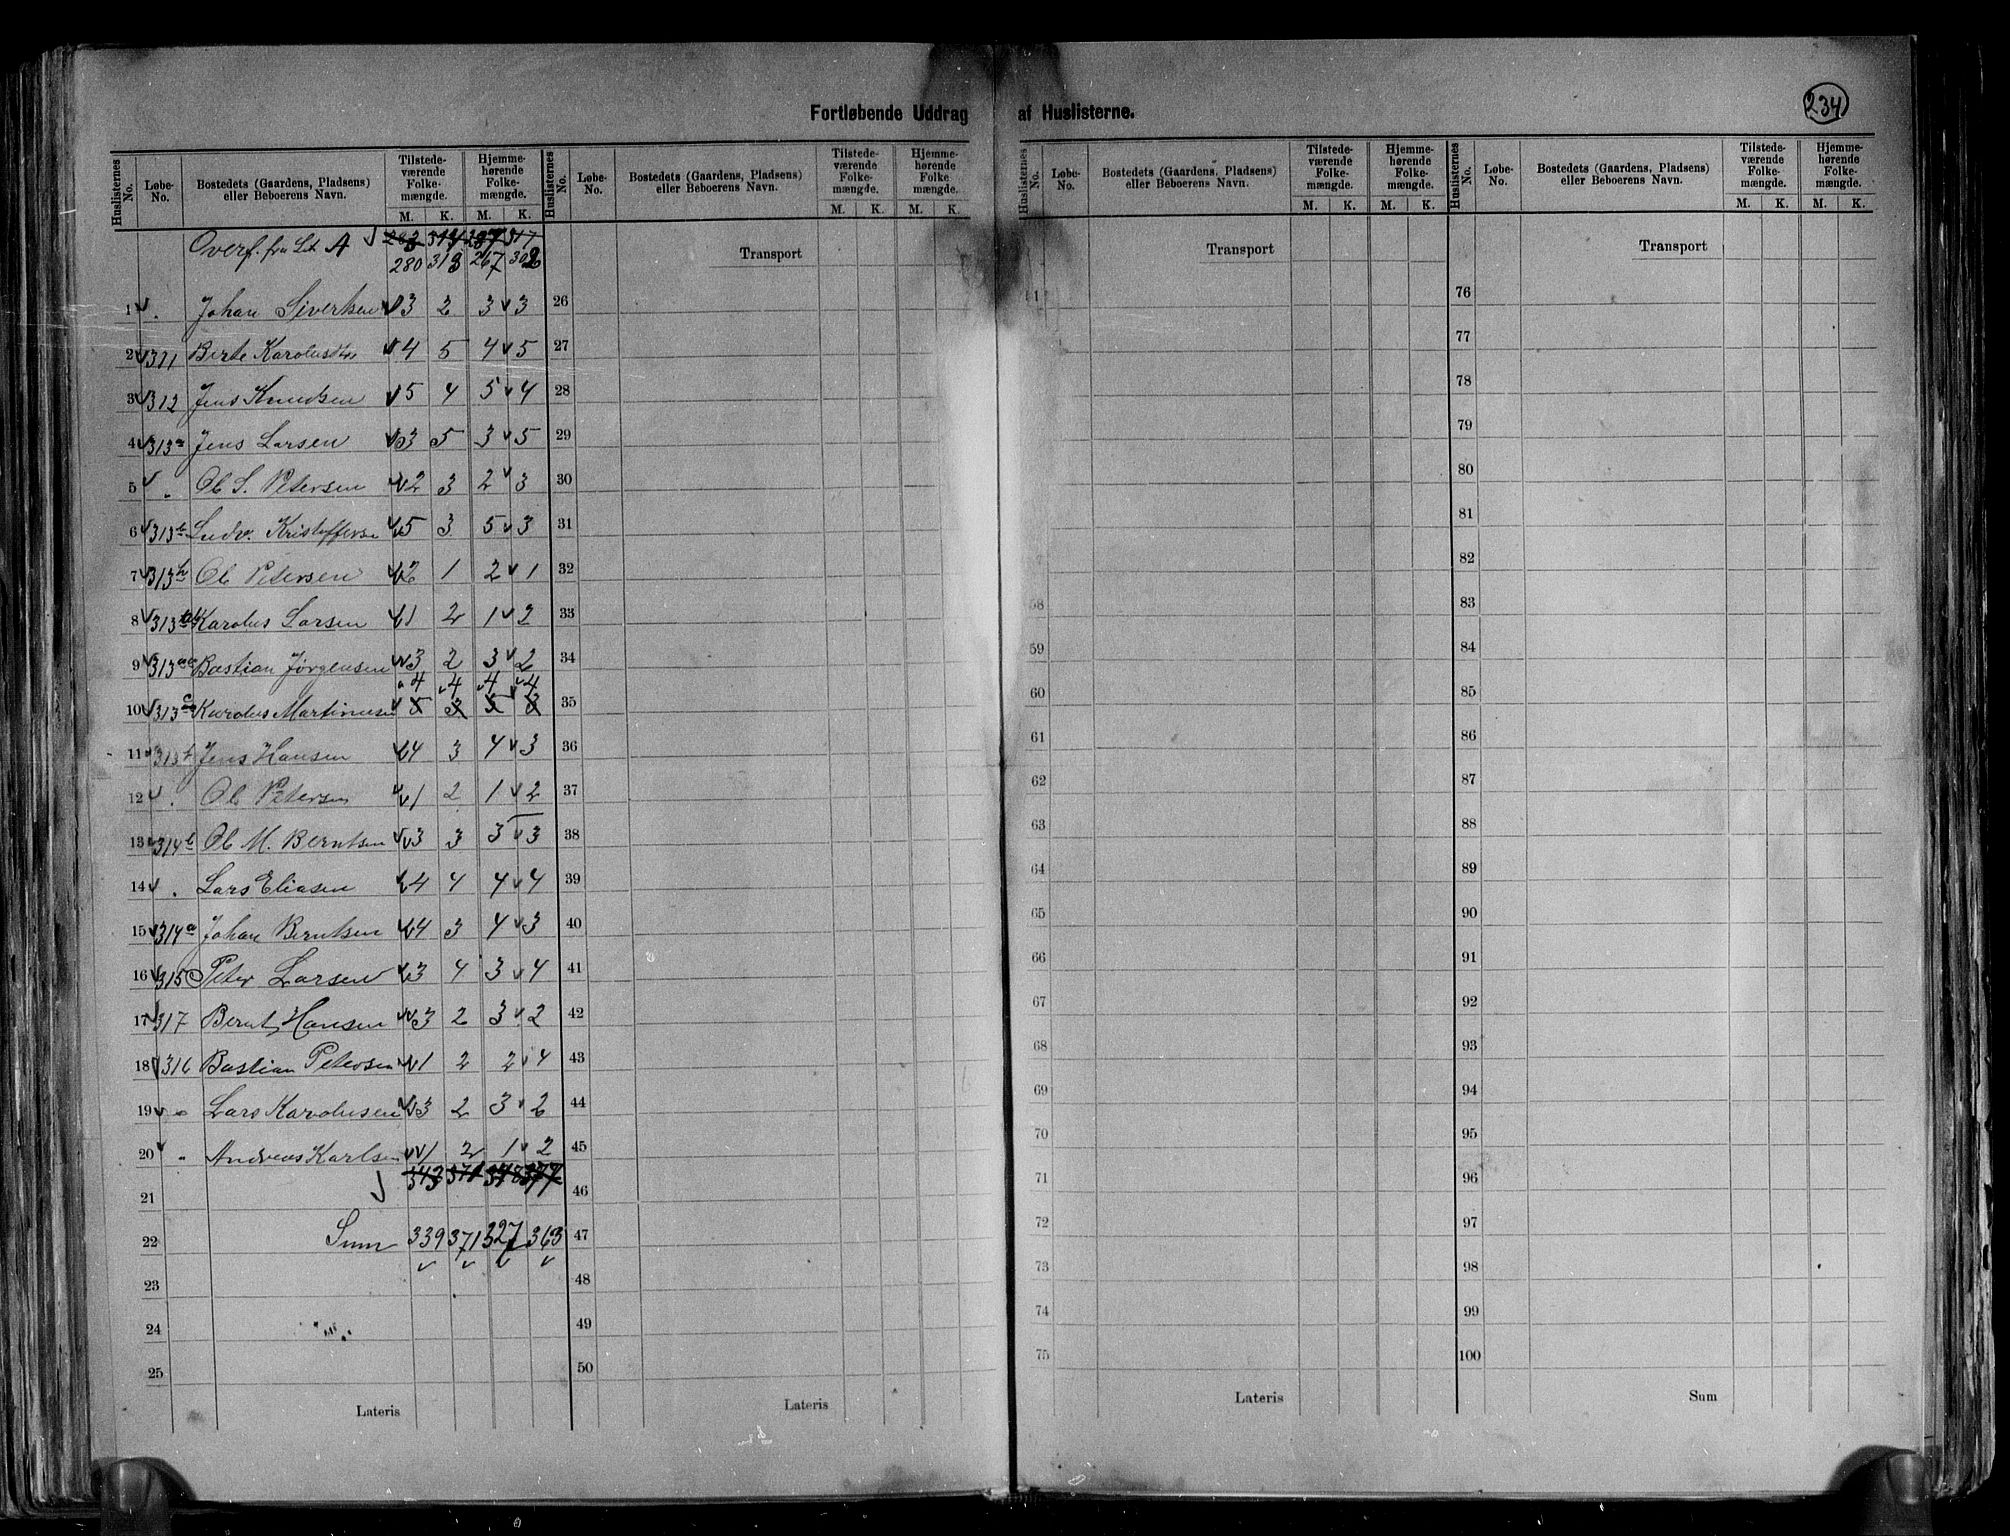 Fortløbende Uddrag af Huslisterne.
234
Huslisternes No. Løbe-No. Bostedets (Gaardens, Pladsens) eller Beboerens Navn. Tilstedeværende Folkemængde. M. K. Hjemmehørende Folkemængde. M. K.
Overf. fra Lit. A
280 313 267 302
1 „ Johan Sivertsen 3 2 3 3
2 311 Berte Karolusdtr 4 5 4 5
3 312 Jens Knudsen 5 4 5 4
4 313a Jens Larsen 3 5 3 5
5 „ Ol. S. Petersen 2 3 2 3
6 313b Ludv. Kristoffersen 5 3 5 3
7 313h Ol. Petersen 2 1 2 1
8 313 Karolus Larsen 1 2 1 2
9 313 Bastian Jørgensen 3 2 3 2
4 4 4 4
10 313 Karolus Martinusen 5 3 5 3
11 313 Jens Hansen 4 3 4 3
12 „ Ol. Petersen 1 2 1 2
13 314b Ol. M. Berntsen 3 3 3 3
14 „ Lars Eliasen 4 4 4 4
15 314a Johan Berntsen 4 3 4 3
16 315 Peter Larsen 3 4 3 4
17 317 Bernt Hansen 3 2 3 2
18 316 Bastian Petersen 1 2 2 4
19 „ Lars Karolusen 3 2 3 2
20 „ Andreas Karlsen 1 2 1 2
21
22 Sum 339 371 327 363
23
24
25
Lateris
Huslisternes No. Løbe-No. Bostedets (Gaardens, Pladsens) eller Beboerens Navn. Tilstedeværende Folkemængde. M. K. Hjemmehørende Folkemængde. M. K.
Transport
26
27
28
29
30
31
32
33
34
35
36
37
38
39
40
41
42
43
44
45
46
47
48
49
50
Lateris
Huslisternes No. Løbe-No. Bostedets (Gaardens, Pladsens) eller Beboerens Navn. Tilstedeværende Folkemængde. M. K. Hjemmehørende Folkemængde. M. K.
Transport
58
59
60
61
62
63
64
65
66
67
68
69
70
71
72
73
74
75
Lateris
Huslisternes No. Løbe-No. Bostedets (Gaardens, Pladsens) eller Beboerens Navn. Tilstedeværende Folkemængde. M. K. Hjemmehørende Folkemængde. M. K.
Transport
76
77
78
79
80
81
82
83
84
85
86
87
88
89
90
91
92
93
94
95
96
97
98
99
100
Sum